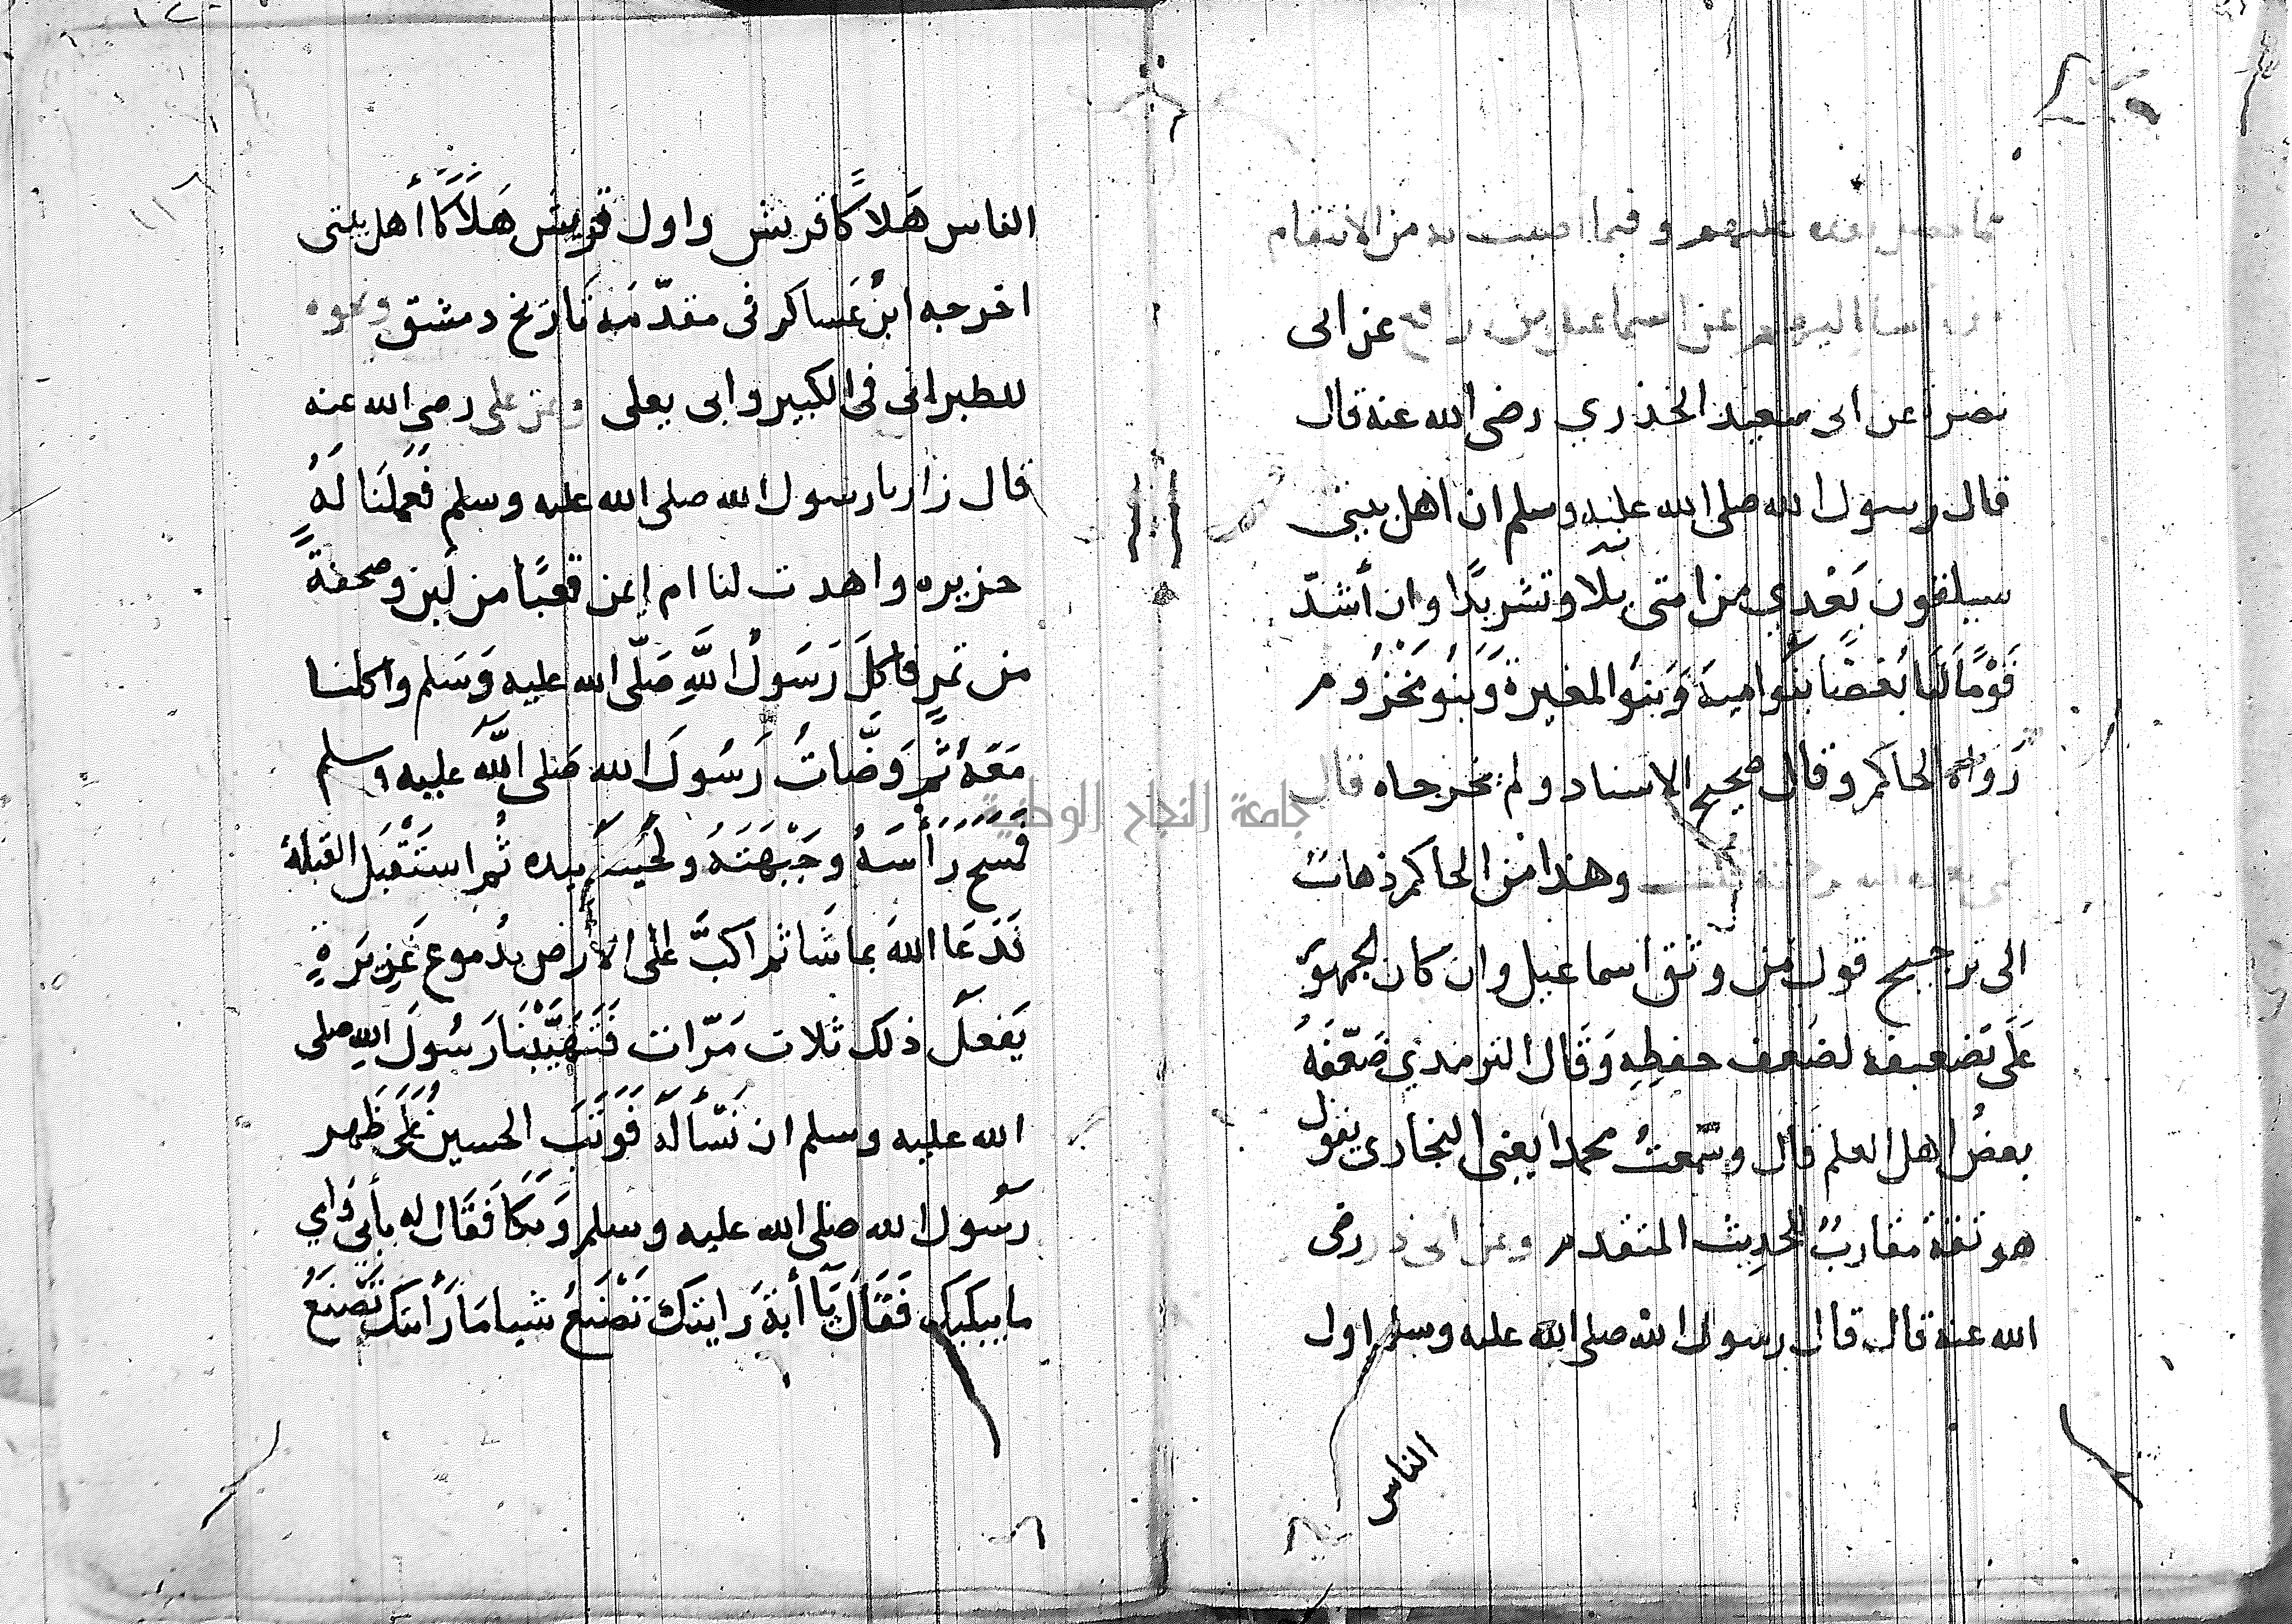 عليهم وفيما اصيب به من الانتقام
عن اسماعيل بن رافع عن ابى
نضرة عن ابى سعيد الخذري رضى الله عنه قال
قال رسول الله صلى الله عليه وسلم ان اهل بيتى
سيلقون بَعْدي من امتى بلا وتشريدًا وان أشدّ
قَوْمًا لَنَا بُغضًا بنُوا ميه وَبنُوا المغيرة وَبنُو مَخْزُوم
رَواه الحاكم وقال صحيح الاسناد ولم يخرجاه قال
وهذا من الحاكم ذهاب
الى ترجيح قول من وثق اسماعيل وان كان الجمهور
عَلَى تضعيفه لضَعف حفظِهِ وَقَال الترمدي ضَعّفهُ
بعضُ اهل العلم قال وسَمعتُ محمدا يعنى البخارى يقول
هو ثقة مقاربُ الحديث المتقدم وعن ابى ذر رضى
الله عنه قال قال رسول الله صلى الله عليه وسلم اول
الناس
الناس هَلاكًا قريش واول قريش هَلَاكًا أهل بيتى
اخرجه ابنُ عَساكر فى مقدّمة تَاريخ دمشق ونحوه
للطبرانى فى الكبير وابى يعلى وعن على رضى الله عنه
قال زارنا رسول الله صلى الله عليه وسلم فَعَمِلنَا لَهُ
حزيره واهدت لنا ام ايمن قعبًا من لبن وصحفةً
من تمرٍ فاكلَ رَسَولُ اللهِ صَلّى الله عليه وَسَلم واكلنا
مَعَهُ ثم وَضّاتُ رَسُولَ الله صَلى اللَّه عليه وسلم
فَمَسح رَأْسَهُ وجَبْهَتَهُ ولحيته بيده ثُم استَقْبَل القبلة
فَدَعَا اللهَ بما شَا ثم اكبَّ على الارض بدُموع غَزيرَةٍ
يَفعَلُ ذلك ثلاث مَرّات فَتَهَيَّبْنَا رَسُولَ اللهِ صلى
الله عليه وسلم ان نَسْأله فَوَثَبَ الحسينُ عَلَى ظَهر
رسُول الله صلى الله عليه وسلم وَبَكَا فَقَال له بأبى وَامي
ما يبكيك فَقَالَ يَا أبة رَايتك تَصْنَعُ شيا مَا رَأيتك تَصْنَعُ
جامعة النجاح الوطنية